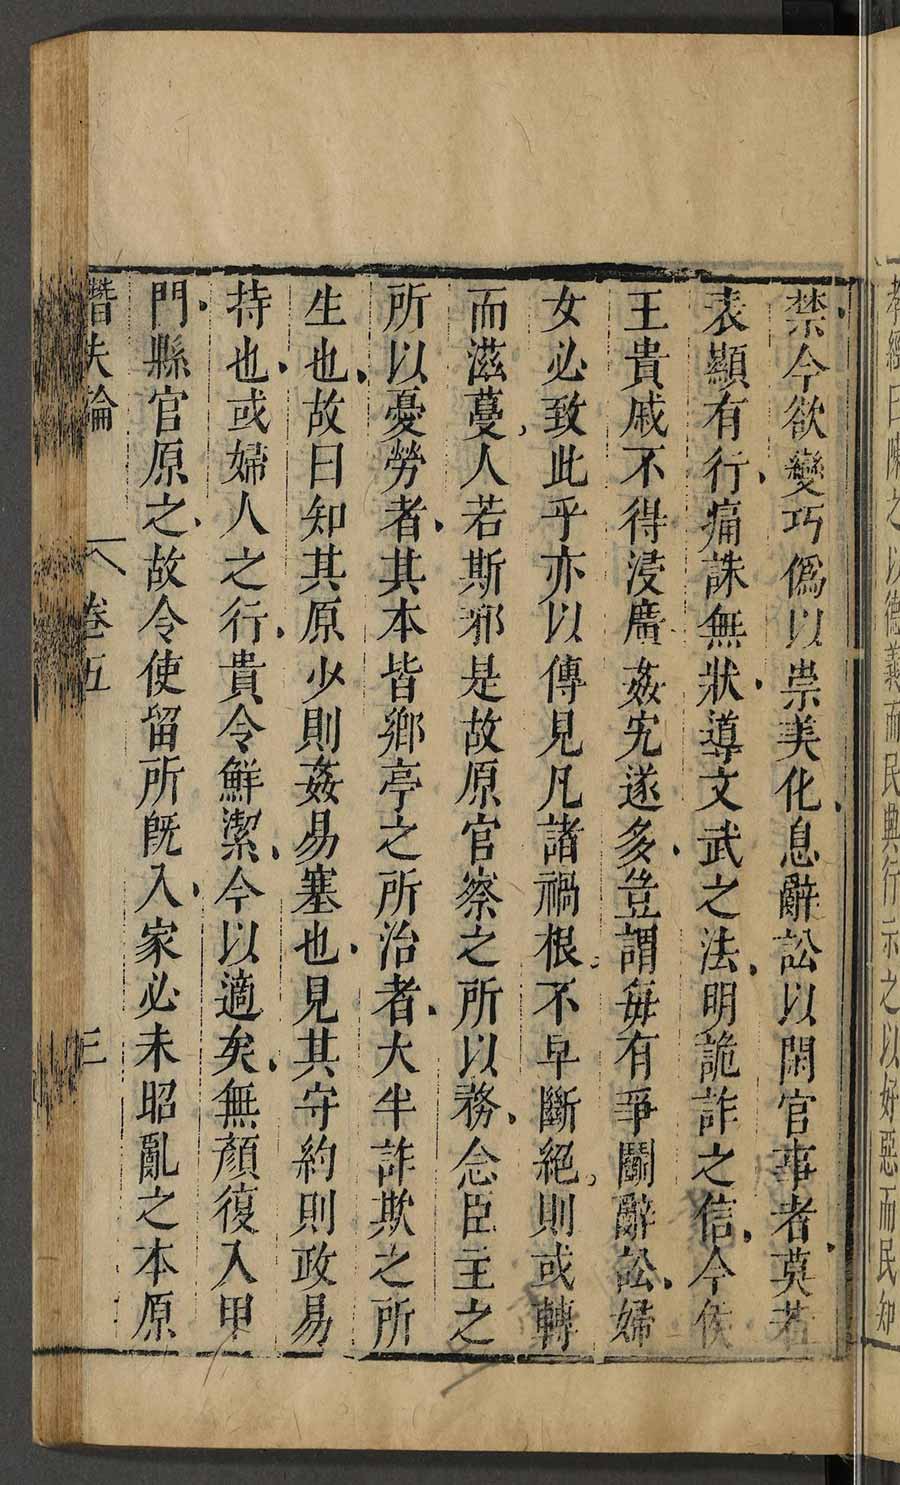 孝經曰陳之以德義而民興行示之以好惡而民知
禁今欲變巧僞以崇美化息辭訟以閑官事者莫若
表顯有行痛誅無狀導文武之法明詭詐之信今侯
王貴戚不得浸廣姦宄遂多豈謂每有爭鬭辭訟婦
女必致此乎亦以傳見凡諸禍根不早斷絕則或轉
而滋蔓人若斯邪是故原官察之所以務念臣主之
所以憂勞者其本皆鄉亭之所治者大半詐欺之所
生也故曰知其原少則姦易塞也見其守約則政易
持也或婦人之行貴令鮮潔今以適矣無顏復入甲
門縣官原之故令使留所旣入家必未昭亂之本原
潛夫論 卷五 三